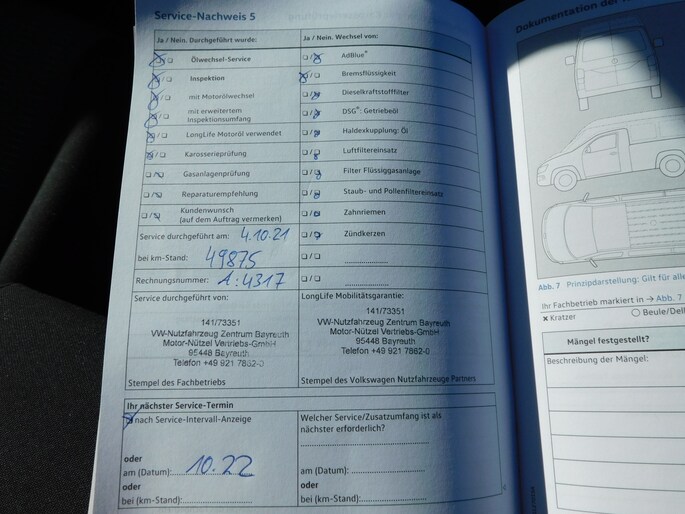 Service-Nachweis 5
Ja / Nein. Durchgeführt wurde:
Ölwechsel-Service
Inspektion
mit Motorölwechsel
mit erweitertem
Inspektionsumfang
LongLife Motoröl verwendet
Karosserieprüfung
Gasanlagenprüfung
Reparaturempfehlung
Kundenwunsch
(auf dem Auftrag vermerken)
Service durchgeführt am: 4.10.21
bei km-Stand: 49875
Rechnungsnummer: 1:4317
Service durchgeführt von:
141/73351
VW-Nutzfahrzeug Zentrum Bayreuth
Motor-Nützel Vertriebs-GmbH
95448 Bayreuth
Telefon +49 921 7862-0
Stempel des Fachbetriebs
Ja / Nein. Wechsel von:
AdBlue®
Bremsflüssigkeit
Dieselkraftstofffilter
DSG®: Getriebeöl
Haldexkupplung: Öl
Luftfiltereinsatz
Filter Flüssiggasanlage
Staub- und Pollenfiltereinsatz
Zahnriemen
Zündkerzen
LongLife Mobilitätsgarantie:
141/73351
VW-Nutzfahrzeug Zentrum Bayreuth
Motor-Nützel Vertriebs-GmbH
95448 Bayreuth
Telefon +49 921 7862-0
Stempel des Volkswagen Nutzfahrzeuge Partners
Ihr nächster Service-Termin
nach Service-Intervall-Anzeige
oder
am (Datum): 10.22
oder
bei (km-Stand):
Welcher Service/Zusatzumfang ist als
nächster erforderlich?
am (Datum):
oder
bei (km-Stand):
Dokumentation der
Abb. 7 Prinzipdarstellung: Gilt für alle
Ihr Fachbetrieb markiert in → Abb. 7
× Kratzer
○ Beule/Dell
Mängel festgestellt?
Beschreibung der Mängel: